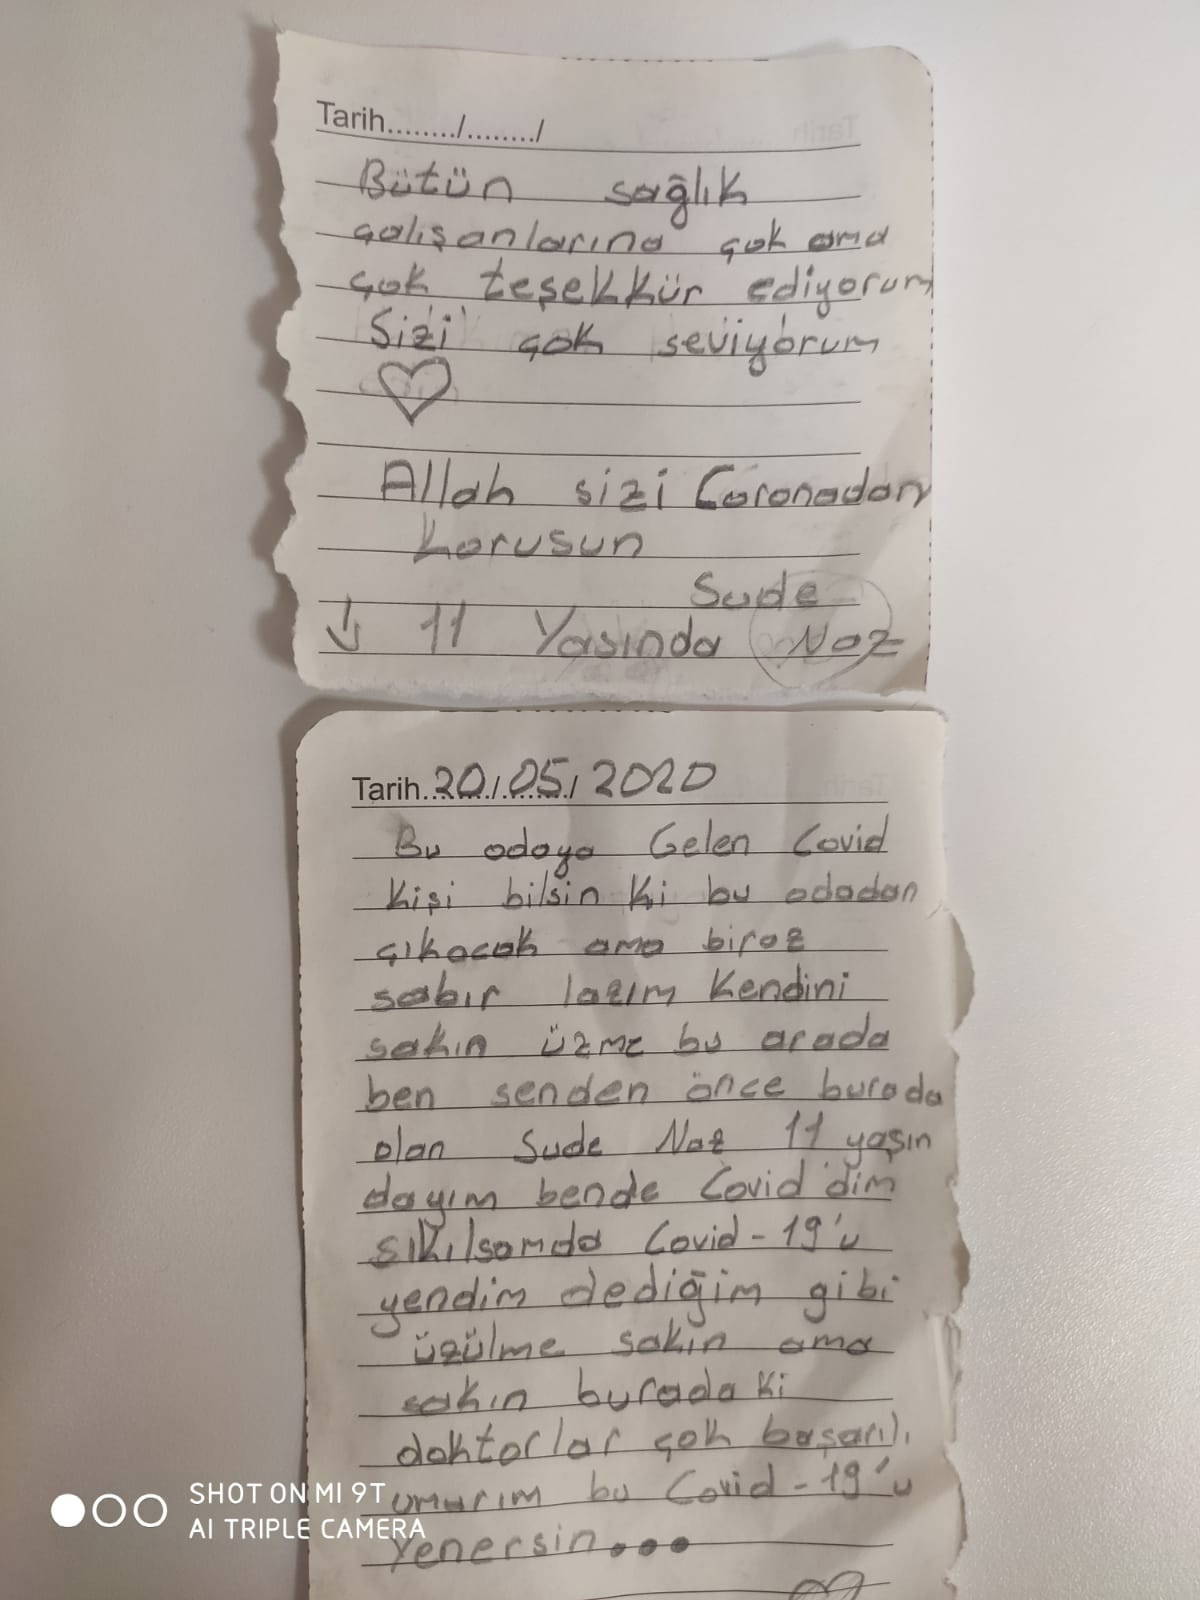 Tarih......../......../
Bütün sağlık
çalışanlarına çok ama
çok teşekkür ediyorum
Sizi çok seviyorum
Allah sizi Coronadan
korusun
Sude
11 Yasında Naz
Tarih.20./.05./ 2020
Bu odaya Gelen Covid
kişi bilsin ki bu odadan
çıkacak ama biraz
sabır lazım kendini
sakın üzme bu arada
ben senden önce burada
olan Sude Naz 11 yaşın
dayım bende Covid'dim
sıkılsamda Covid-19'u
yendim dediğim gibi
üzülme sakın ama
sakın burada ki
doktorlar çok başarılı
umarım bu Covid-19'u
Yenersin...
SHOT ON MI 9T
AI TRIPLE CAMERA